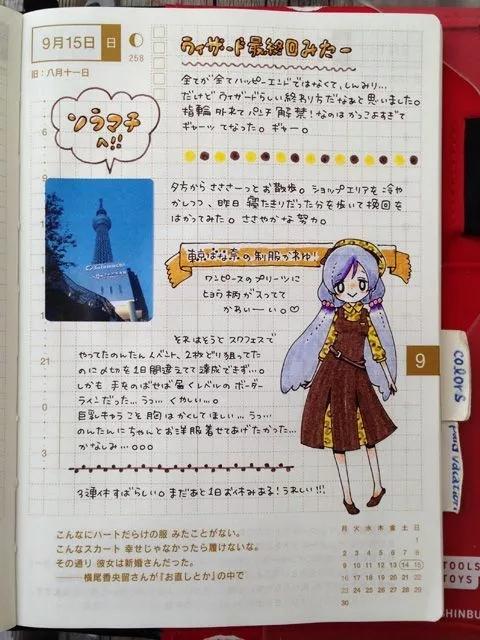 9月15日 日
258
旧：八月十一日
ウィザード最終回みたー
全てが全てハッピーエンドではなくて、しんみり…
だけどウィザードらしい終わり方だなぁと思いました。
指輪外れてパンチ解禁！なのはかっこよすぎて
ギャーッてなった。ギャー。
ソラマチ
へ!!
夕方からさささーっとお散歩。ショップエリアを冷や
かしつつ、昨日寝たきりだった分を歩いて挽回を
はかってみた。ささやかな努力。
東京ばな奈の制服かわゆ!
ワンピースのプリーツに
ヒョウ柄が入ってて
かわいーい。♡
それはそうとスクフェスで
やってたのんたんイベント、2枚どり狙ってた
のに〆切を1日間違えてて達成できず…。
しかも手をのばせば届くレベルのボーダー
ラインだった…うっ…くやしい…。
巨乳キャラこそ胸はかくしてほしい…うっ…
のんたんにちゃんとお洋服着せてあげたかった…
かなしみ…。。。
3連休すばらしい。まだあと1日お休みある！うれしい!!!
6
9
21
0
3
9
COLOYS
vacation
TOOLS
TOYS
HINBU
こんなにハートだらけの服 みたことがない。
こんなスカート 幸せじゃなかったら履けないな。
その通り 彼女は新婚さんだった。
──横尾香央留さんが『お直しとか』の中で
月 火 水 木 金 土 日
1
2 3 4 5 6 7 8
9 10 11 12 13 14 15
16 17 18 19 20 21 22
23 24 25 26 27 28 29
30